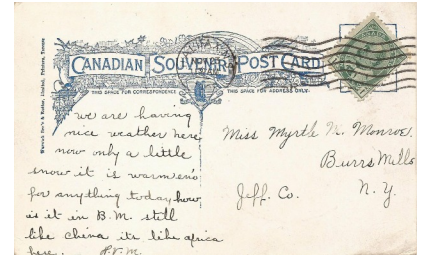 CANADIAN SOUVENIR POST CARD
THIS SPACE FOR CORRESPONDENCE
THIS SPACE FOR ADDRESS ONLY.
we are having
nice weather here
now only a little
snow it is warm eno
for anything today how
is it in B.M. still
like china its like africa
here. H.V.M.
Miss Myrtle M. Monroe.
Burrs Mills
Jeff. Co. N.Y.
CANADA